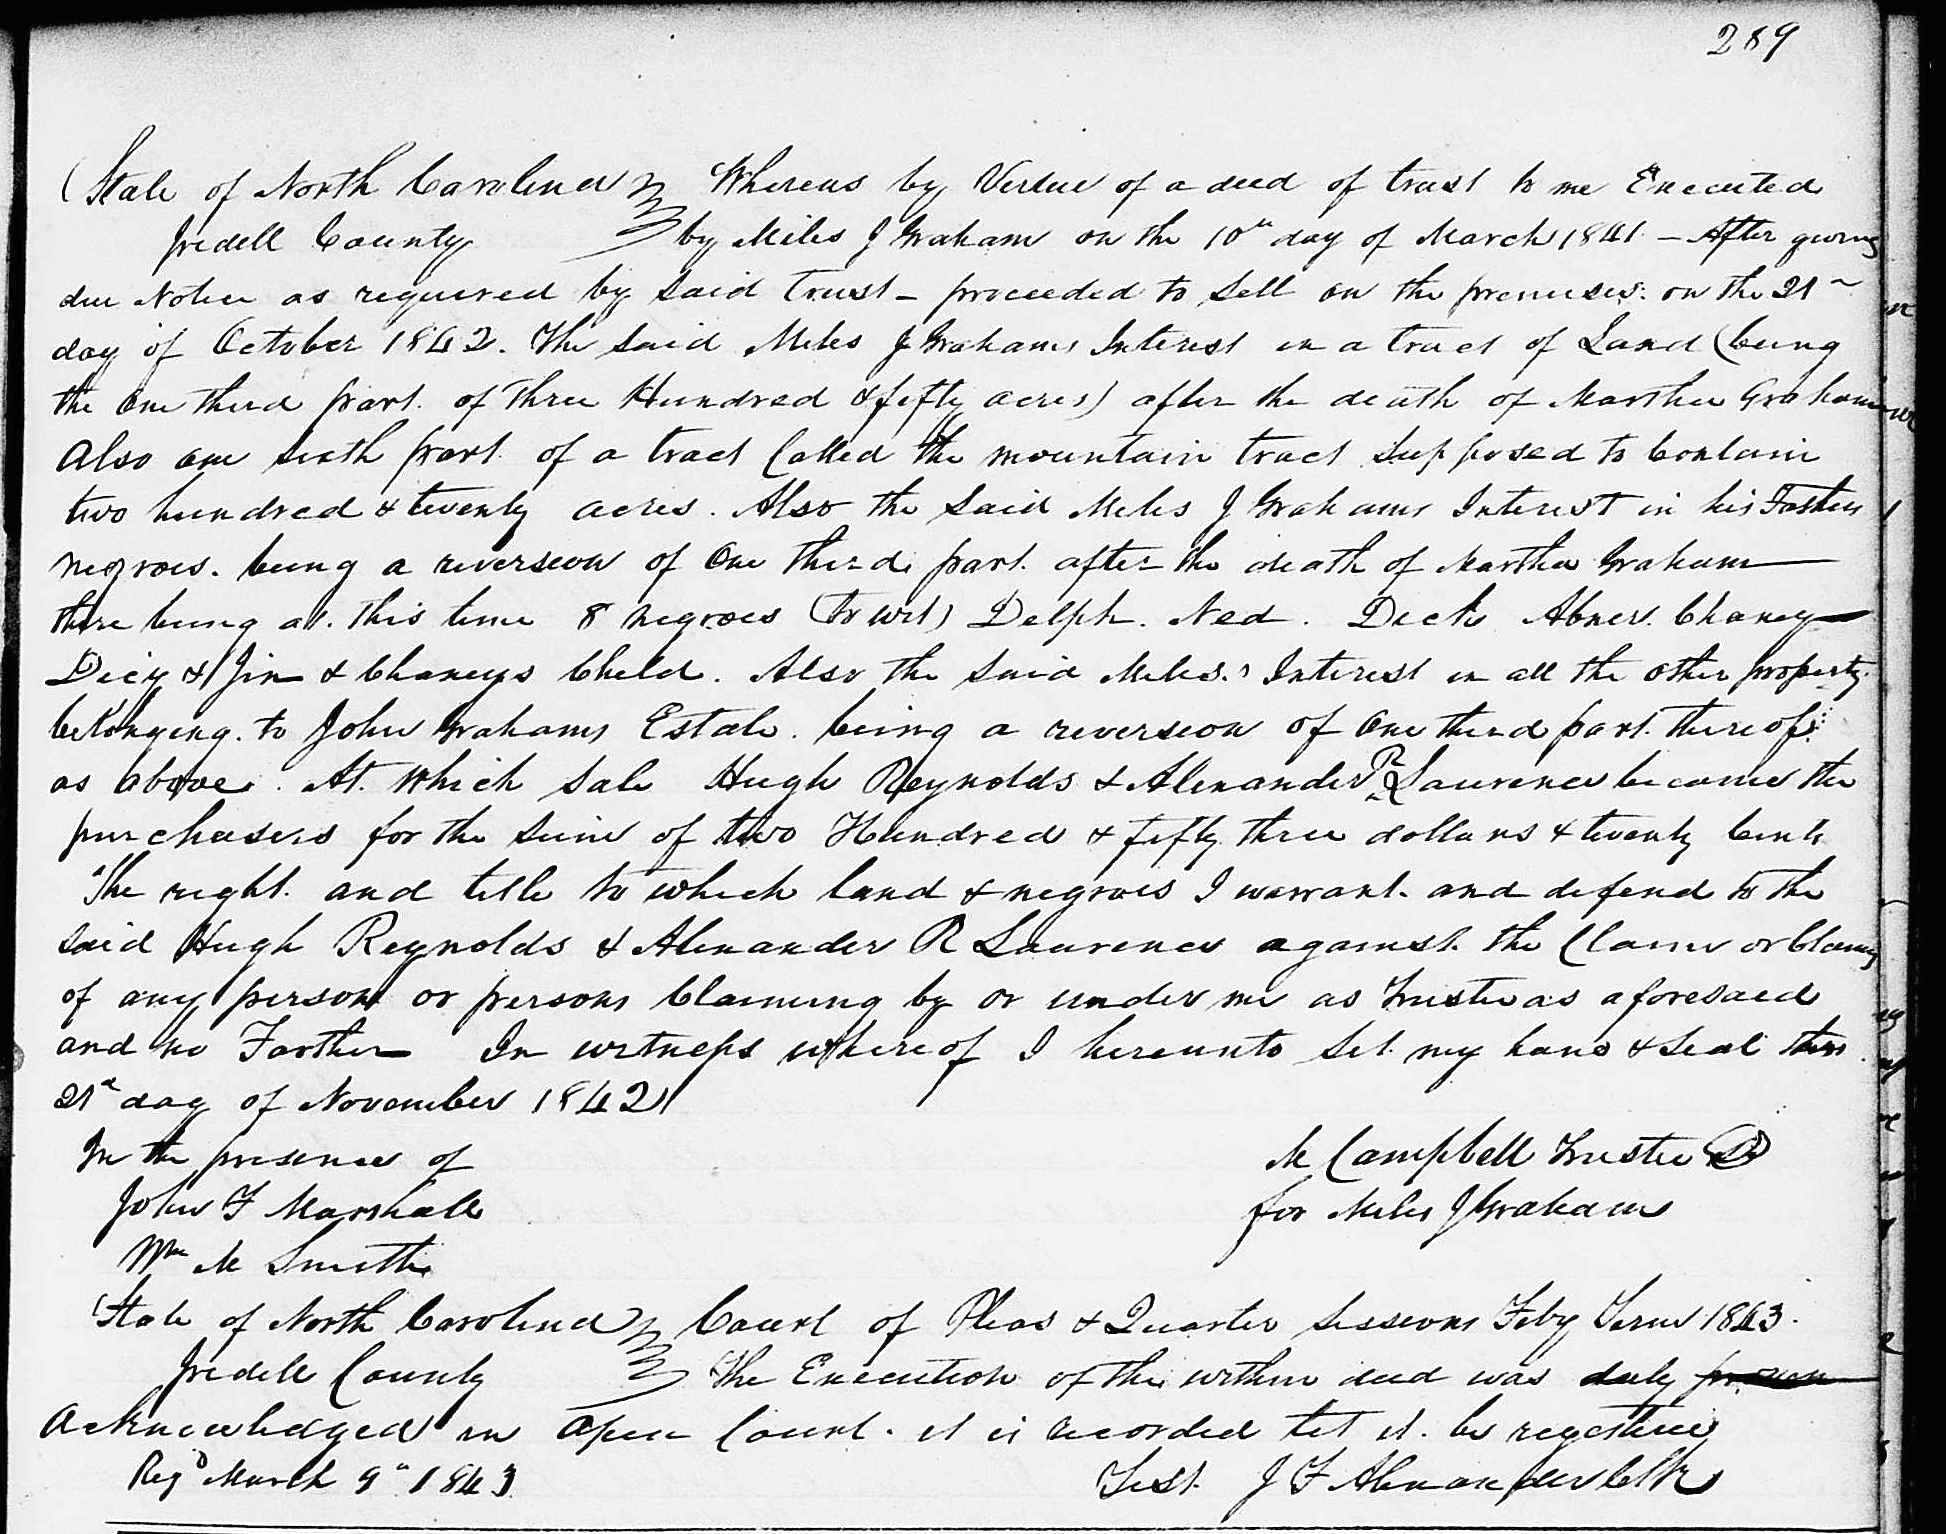 289
State of North Carolina Whereas by Vertue of a deed of trust to me Executed
Iredell County by Miles J Graham on the 10th day of March 1841 - After giving
due Notice as required by Said trust - proceeded to Sell on the premises. on the 21st
day of October 1842. The Said Miles J Grahams Interest in a tract of Land (being
the One third part. of Three Hundred & fifty acres) after the death of Martha Graham
Also one sixth part. of a tract Called the mountain tract Supposed to Contain
two hundred & twenty acres. Also the Said Miles J Grahams Interest in his Fathers
negroes. being a reversion of One third part. after the death of Martha Graham
there being at. this time 8 negroes (to wit) Delph. Ned. Dick Abner. Chaney
Dicy & Jin & Chaneys Child. Also the Said Miles.' Interest in all the other property
belonging. to John Grahams Estate. being a reversion of One third part. thereof
as above. At. Which Sale Hugh Reynolds & Alexander R Laurence became the
purchasers for the Sum of two Hundred & fifty three dollars & twenty Cents
The right. and title to which land & negroes I warrant. and defend to the
said Hugh Reynolds & Alexander R Laurence against. the Claim or Claims
of any person or persons Claiming by or under me as Trustee as aforesaid
and no Farther In witness whereof I hereunto Set. my hand & Seal this
21st day of November 1842
In the presence of M Campbell Trustee
John F Marshall for Miles J Graham
Wm M Smith
State of North Carolina Court of Pleas & Quarter Sessions Feby Term 1843.
Iredell County The Execution of the within deed was duly proven
Acknowledged in Open Court. it is recorded let it. be registered
Regd March 9th 1843 Test. J F Alexander Clk